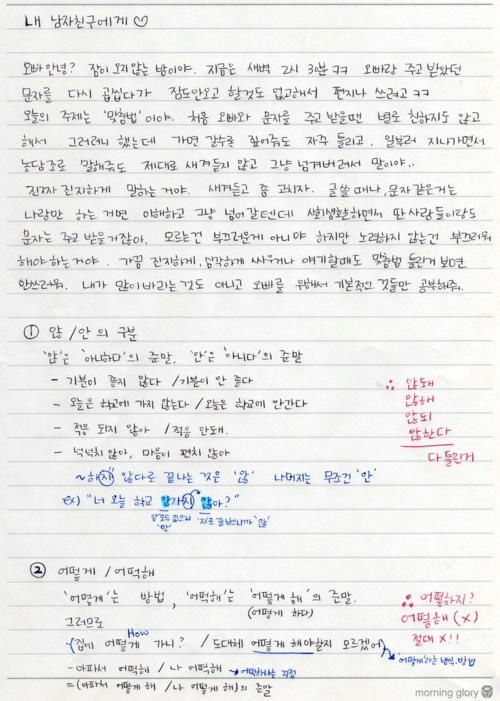 내 남자친구에게 ♡
오빠안녕? 잠이 오지 않는 밤이야. 지금은 새벽 2시 30분 ㅋㅋ 오빠랑 주고 받았던
문자를 다시 곱씹다가 잠도안오고 할것도 없고해서 편지나 쓰려고 ㅋㅋ
오늘의 주제는 '맞춤법' 이야. 처음 오빠와 문자를 주고 받을땐 별로 친하지도 않고
해서 그러려니 했는데 가면 갈수록 짚어줘도 자주 틀리고, 일부러 지나가면서
농담조로 말해줘도 제대로 새겨듣지 않고 그냥 넘겨버려서 말이야..
진짜 진지하게 말하는 거야. 새겨듣고 좀 고치자. 글쓸 때나, 문자 같은거는
나랑만 하는 거면 이해하고 그냥 넘어 갈텐데 사회생활하면서 딴 사람들이랑도
문자는 주고 받을거잖아. 모르는건 부끄러운게 아니야 하지만 노력하지 않는건 부끄러워
해야하는거야. 가끔 진지하게, 심각하게 싸우거나 얘기할때도 맞춤법 틀린거 보면
안쓰러워. 내가 많이 바라는것도 아니고 오빠를 위해서 기본적인 것들만 공부해주.
① 않 / 안 의 구분
'않'은 '아니하다'의 준말, '안'은 '아니다'의 준말
- 기분이 좋지 않다 / 기분이 안 좋다
- 오늘은 학교에 가지 않는다 / 오늘은 학교에 안간다
- 적응 되지 않아 / 적응 안돼.
- 넉넉치 않아, 마음이 편치 않아
∴ 않돼
않해
않되
않한다
다 틀린거
~하지 않다로 끝나는 것은 '않' 나머지는 무조건 '안'
ex) "너 오늘 학교 안가지 않아?"
'안'
'지'로 끝났으니까 '않'
② 어떻게 / 어떡해
'어떻게'는 방법, '어떡해'는 '어떻게 해'의 준말.
(어떻게 하다)
그러므로
How
(집에 어떻게 가니? / 도대체 어떻게 해야할지 모르겠어)
어떻게라는 방식, 방법
- 아파서 어떡해 / 나 어떡해
어떡하라는 걱정
= (아파서 어떻게 해 / 나 어떻게 해)의 준말
∴ 어떻하지?
어떻해 (x)
절대 X!!
morning glory